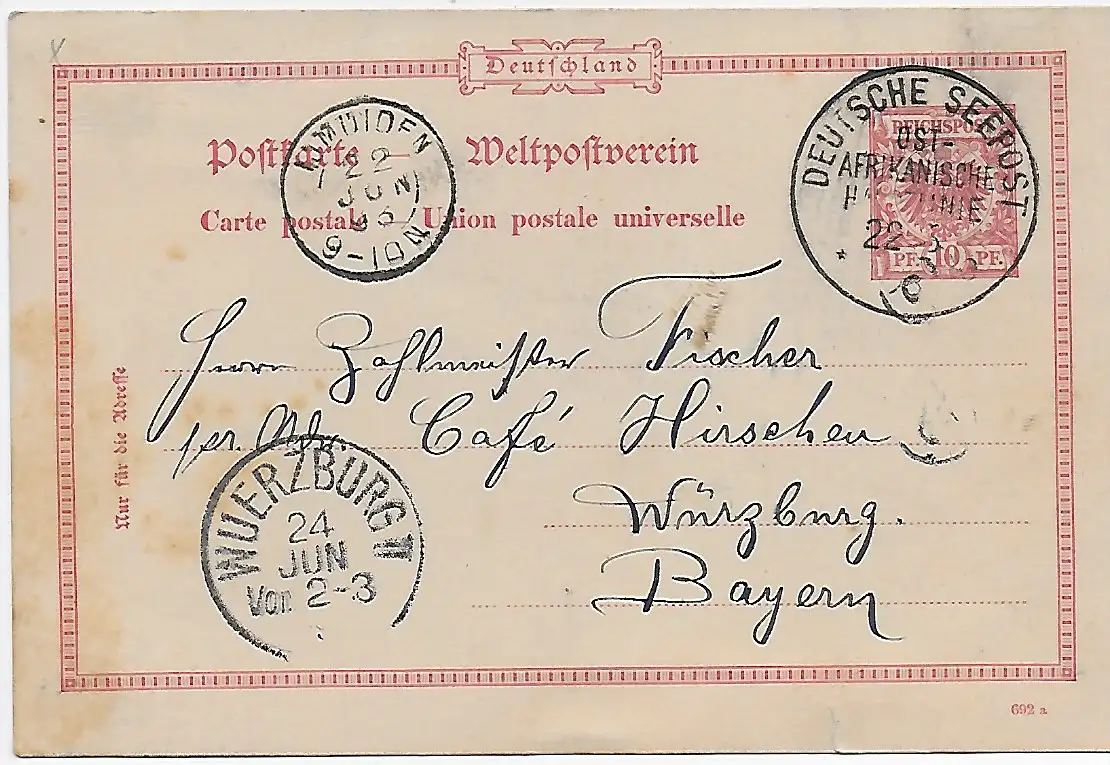 Deutschland
Postkarte — Weltpostverein
Carte postale — Union postale universelle
IJMUIDEN
22
JUN
9-10N
DEUTSCHE SEEPOST
OST-
AFRIKANISCHE
LINIE
22
REICHSPOST
PF. 10 PF.
Herrn Zahlmeister Fischer
per Adr. Café Hirschen
Würzburg.
Bayern
Nur für die Adresse
WUERZBURG II
24
JUN
Vor 2-3
692 a